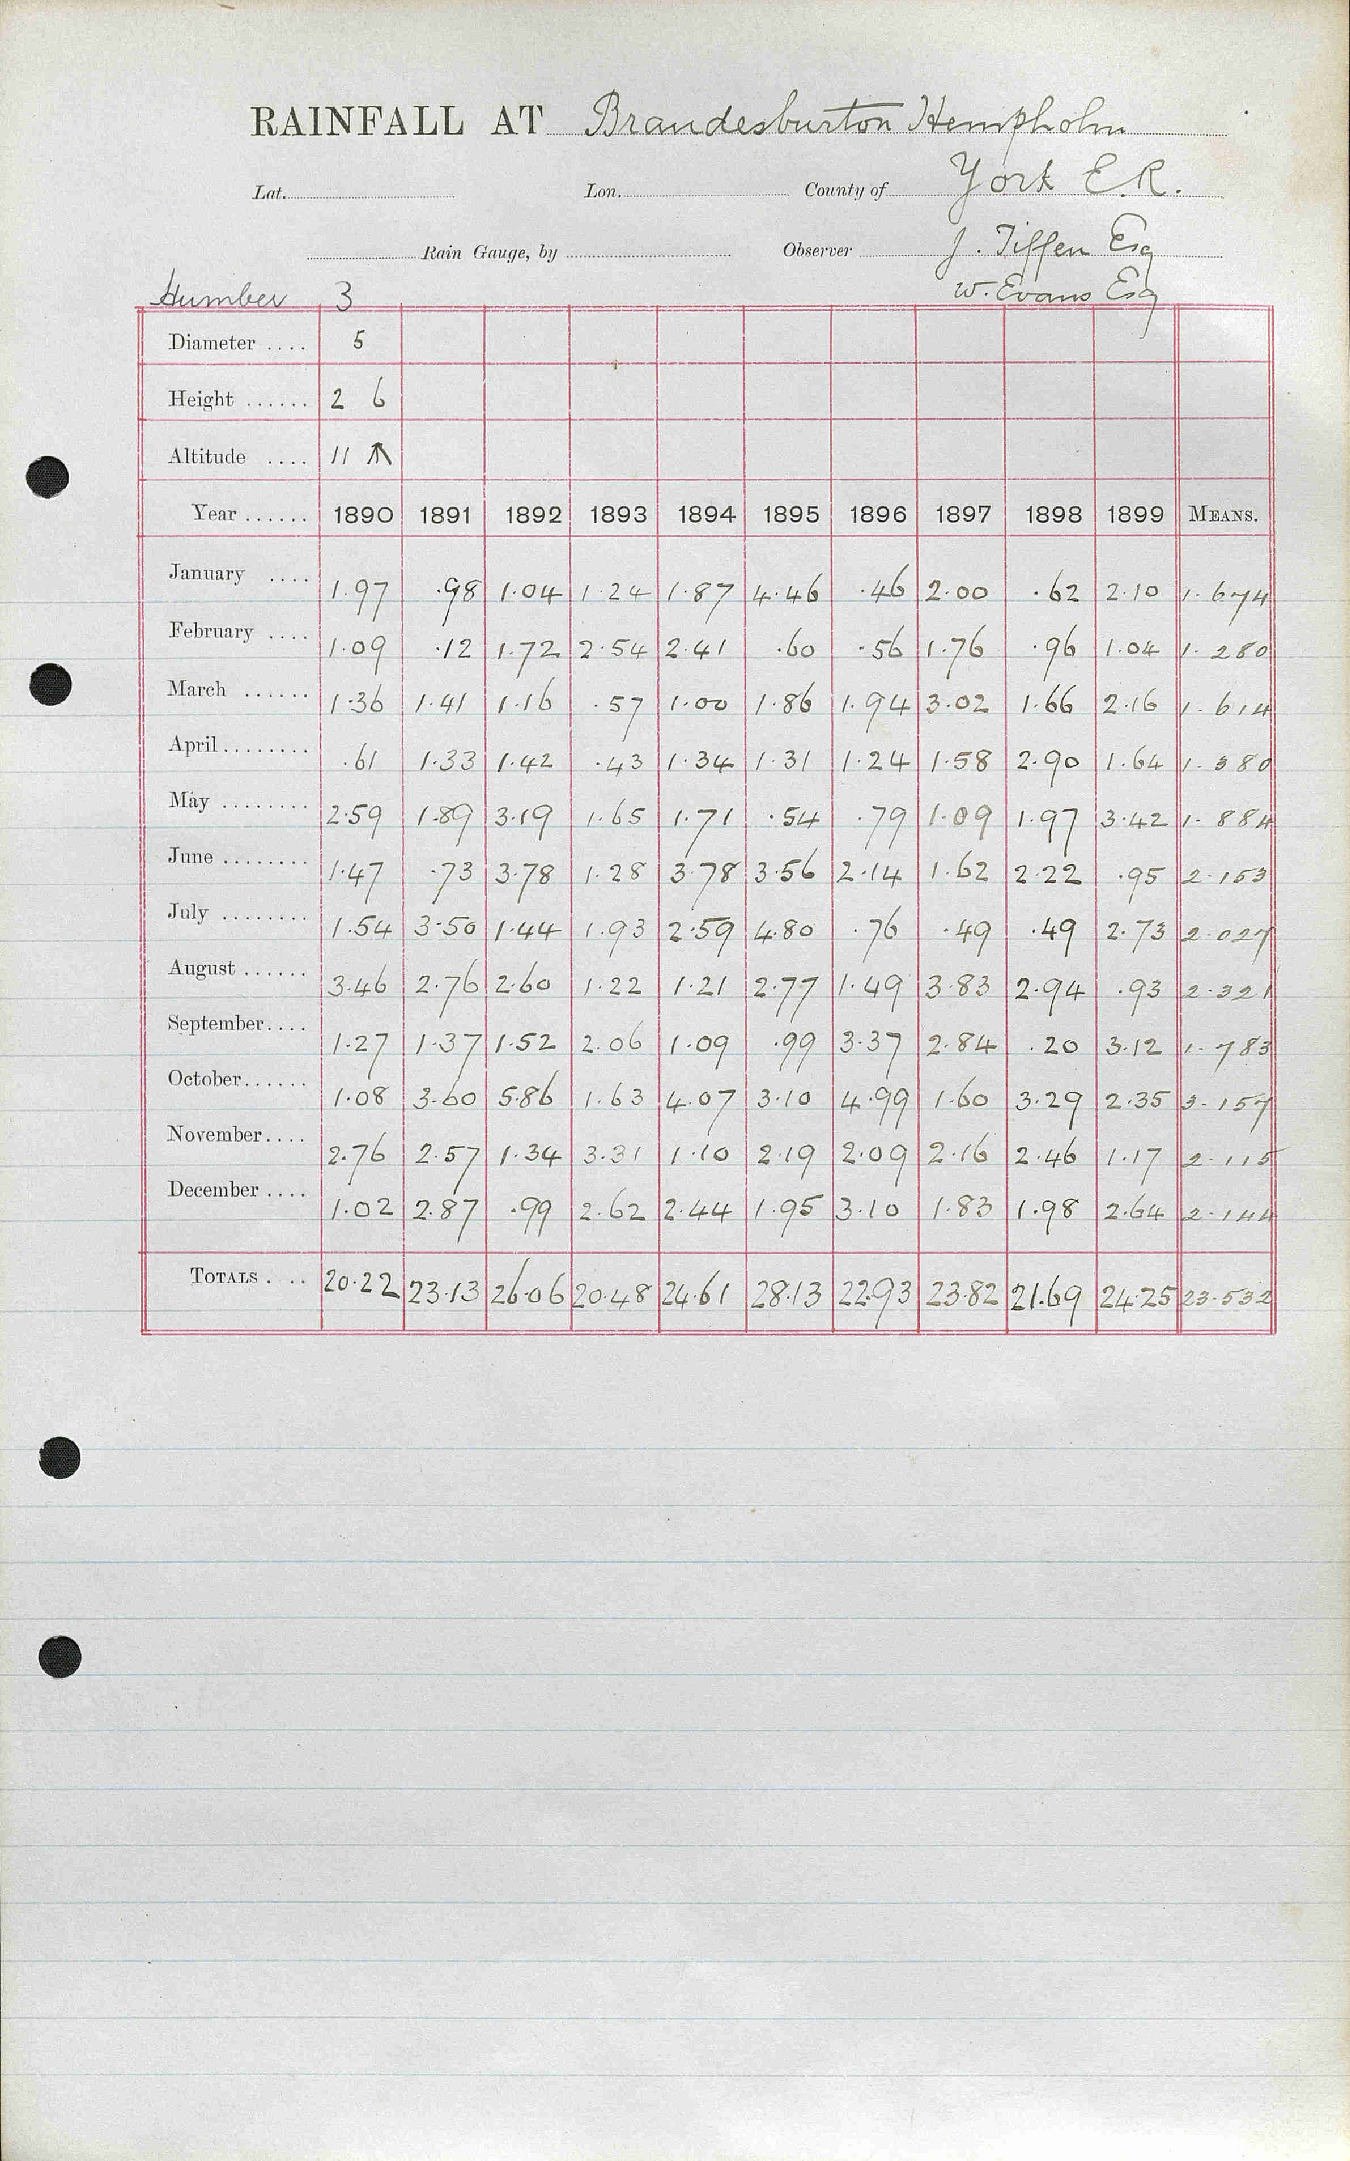 RAINFALL AT Brandesburton Hempholm
Lat. Lon. County of York E.R.
Rain Gauge, by Observer J. Tiffen Esq
Humber 3 W. Evans Esq
Diameter .... 5
Height ...... 2 6
Altitude .... 11 ↑
Year ...... 1890 1891 1892 1893 1894 1895 1896 1897 1898 1899 MEANS.
January .... 1.97 .98 1.04 1.24 1.87 4.46 .46 2.00 .62 2.10 1.674
February .... 1.09 .12 1.72 2.54 2.41 .60 .56 1.76 .96 1.04 1.280
March ...... 1.36 1.41 1.16 .57 1.00 1.86 1.94 3.02 1.66 2.16 1.614
April ........ .61 1.33 1.42 .43 1.34 1.31 1.24 1.58 2.90 1.64 1.380
May ........ 2.59 1.89 3.19 1.65 1.71 .54 .79 1.09 1.97 3.42 1.884
June ........ 1.47 .73 3.78 1.28 3.78 3.56 2.14 1.62 2.22 .95 2.153
July ........ 1.54 3.50 1.44 1.93 2.59 4.80 .76 .49 .49 2.73 2.027
August ...... 3.46 2.76 2.60 1.22 1.21 2.77 1.49 3.83 2.94 .93 2.321
September .... 1.27 1.37 1.52 2.06 1.09 .99 3.37 2.84 .20 3.12 1.783
October ...... 1.08 3.60 5.86 1.63 4.07 3.10 4.99 1.60 3.29 2.35 3.157
November .... 2.76 2.57 1.34 3.31 1.10 2.19 2.09 2.16 2.46 1.17 2.115
December .... 1.02 2.87 .99 2.62 2.44 1.95 3.10 1.83 1.98 2.64 2.144
TOTALS .... 20.22 23.13 26.06 20.48 24.61 28.13 22.93 23.82 21.69 24.25 23.532